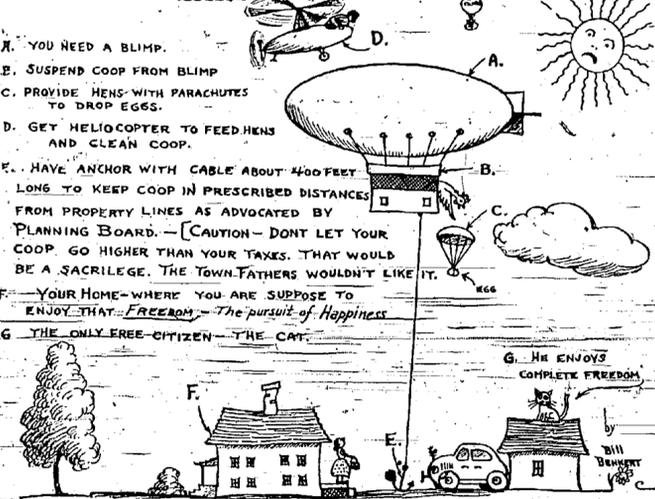 A. YOU NEED A BLIMP.
B. SUSPEND COOP FROM BLIMP
C. PROVIDE HENS WITH PARACHUTES
TO DROP EGGS.
D. GET HELIOCOPTER TO FEED HENS
AND CLEAN COOP.
E. HAVE ANCHOR WITH CABLE ABOUT 400 FEET
LONG TO KEEP COOP IN PRESCRIBED DISTANCES
FROM PROPERTY LINES AS ADVOCATED BY
PLANNING BOARD. — [CAUTION — DONT LET YOUR
COOP GO HIGHER THAN YOUR TAXES. THAT WOULD
BE A SACRILEGE. THE TOWN FATHERS WOULDN'T LIKE IT.
F. YOUR HOME — WHERE YOU ARE SUPPOSE TO
ENJOY THAT FREEDOM — The pursuit of Happiness
G THE ONLY FREE CITIZEN — THE CAT.
D.
A.
B.
C.
EGG
G. HE ENJOYS
COMPLETE FREEDOM
F.
E.
by
Bill
BENKERT